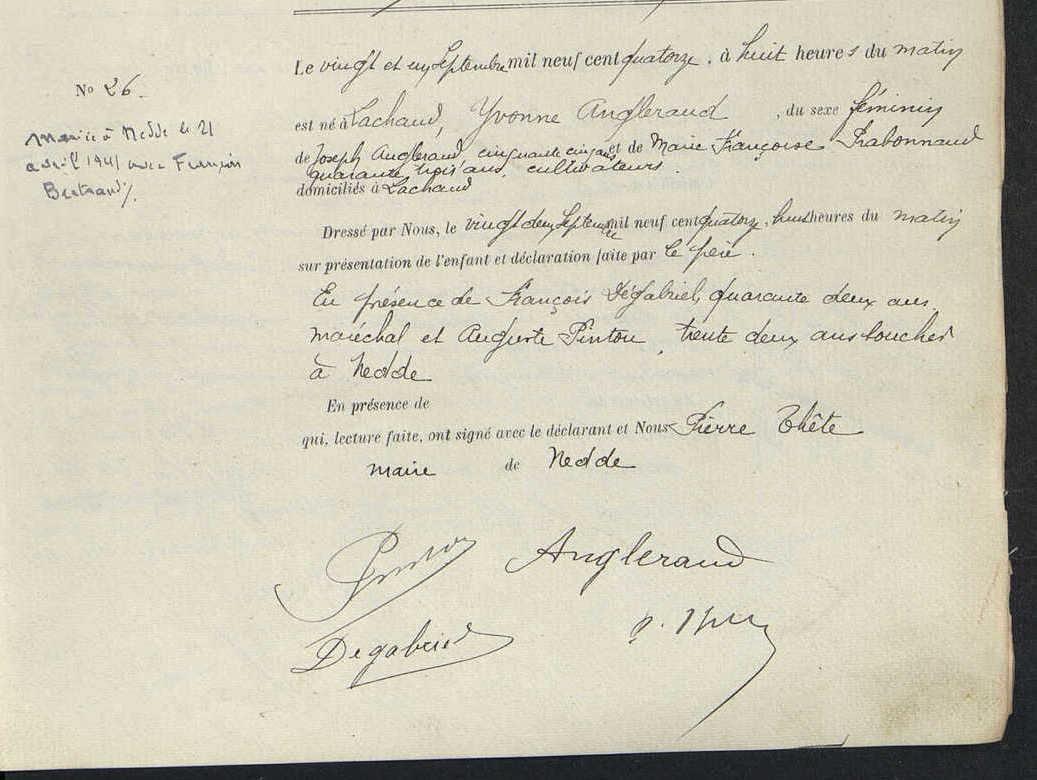 Le vingt et un Septembre mil neuf cent quatorze, à huit heures du matin
No 26
est né à Lachaud, Yvonne Angleraud, du sexe féminin
Mariée à Nedde le 21
avril 1941 avec François
Bertrand
de Joseph Anglerand, cinquante cinq ans et de Marie Françoise Prabonnaud
quarante trois ans, cultivateurs.
domiciliés à Lachaud
Dressé par Nous, le vingt deux Septembre mil neuf cent quatorze, huit heures du matin
sur présentation de l'enfant et déclaration faite par le père.
En présence de François Dégabriel, quarante deux ans,
maréchal et Auguste Pintou, trente deux ans boucher
à Nedde
En présence de
qui, lecture faite, ont signé avec le déclarant et Nous Pierre Thête
maire de Nedde
Pintou Angleraud
Degabriel